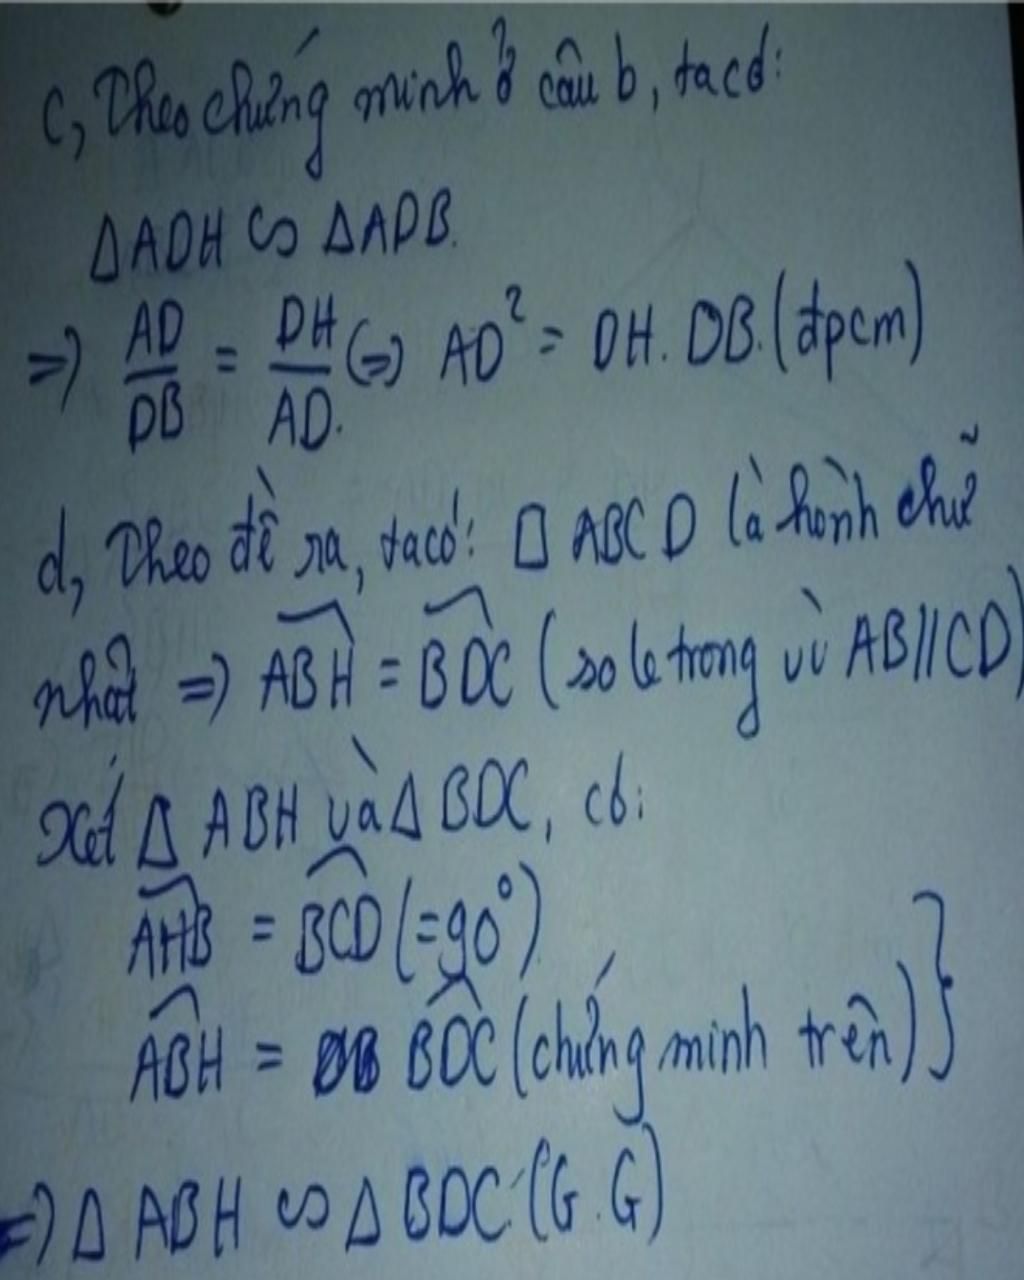 c, Theo chứng minh ở câu b, ta có:
ΔADH ∽ ΔADB.
=> AD/DB = DH/AD. (=>) AD² = DH. DB. (đpcm)
d, Theo đề ra, ta có: □ ABCD là hình chữ
nhật => ABH = BDC (so le trong vì AB//CD)
Xét Δ ABH và Δ BDC, có:
AHB = BCD (=90°)
ABH = BDC (chứng minh trên) }
=> Δ ABH ∽ Δ BDC. (G.G)